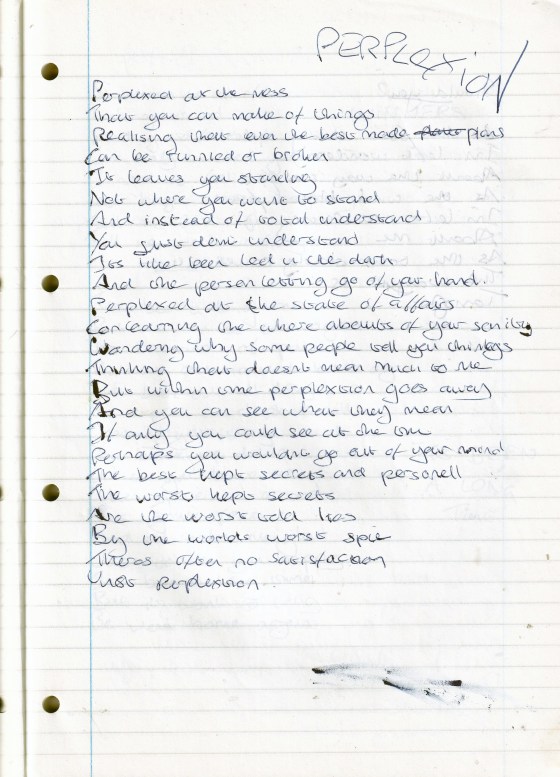 PERPLEXION
Perplexed at the mess
That you can make of things
Realising that even the best made plans
Can be runied or broken
It leaves you standing
Not where you want to stand
And instead of total understand
You just don't understand
Its like been led in the dark
And the person letting go of your hand.
Perplexed at the state of affairs
Concearning the where abouts of your sanity
Wondering why some people tell you things
Thinking that doesnt mean much to me
But within time perplextion goes away
And you can see what they mean
If only you could see at the time
Perhaps you wouldnt go out of your mind
The best kept secrets and personell
The worst kept secrets
Are the worst told lies
By the worlds worst spie
Theres often no satisfaction
Just Perplextion.